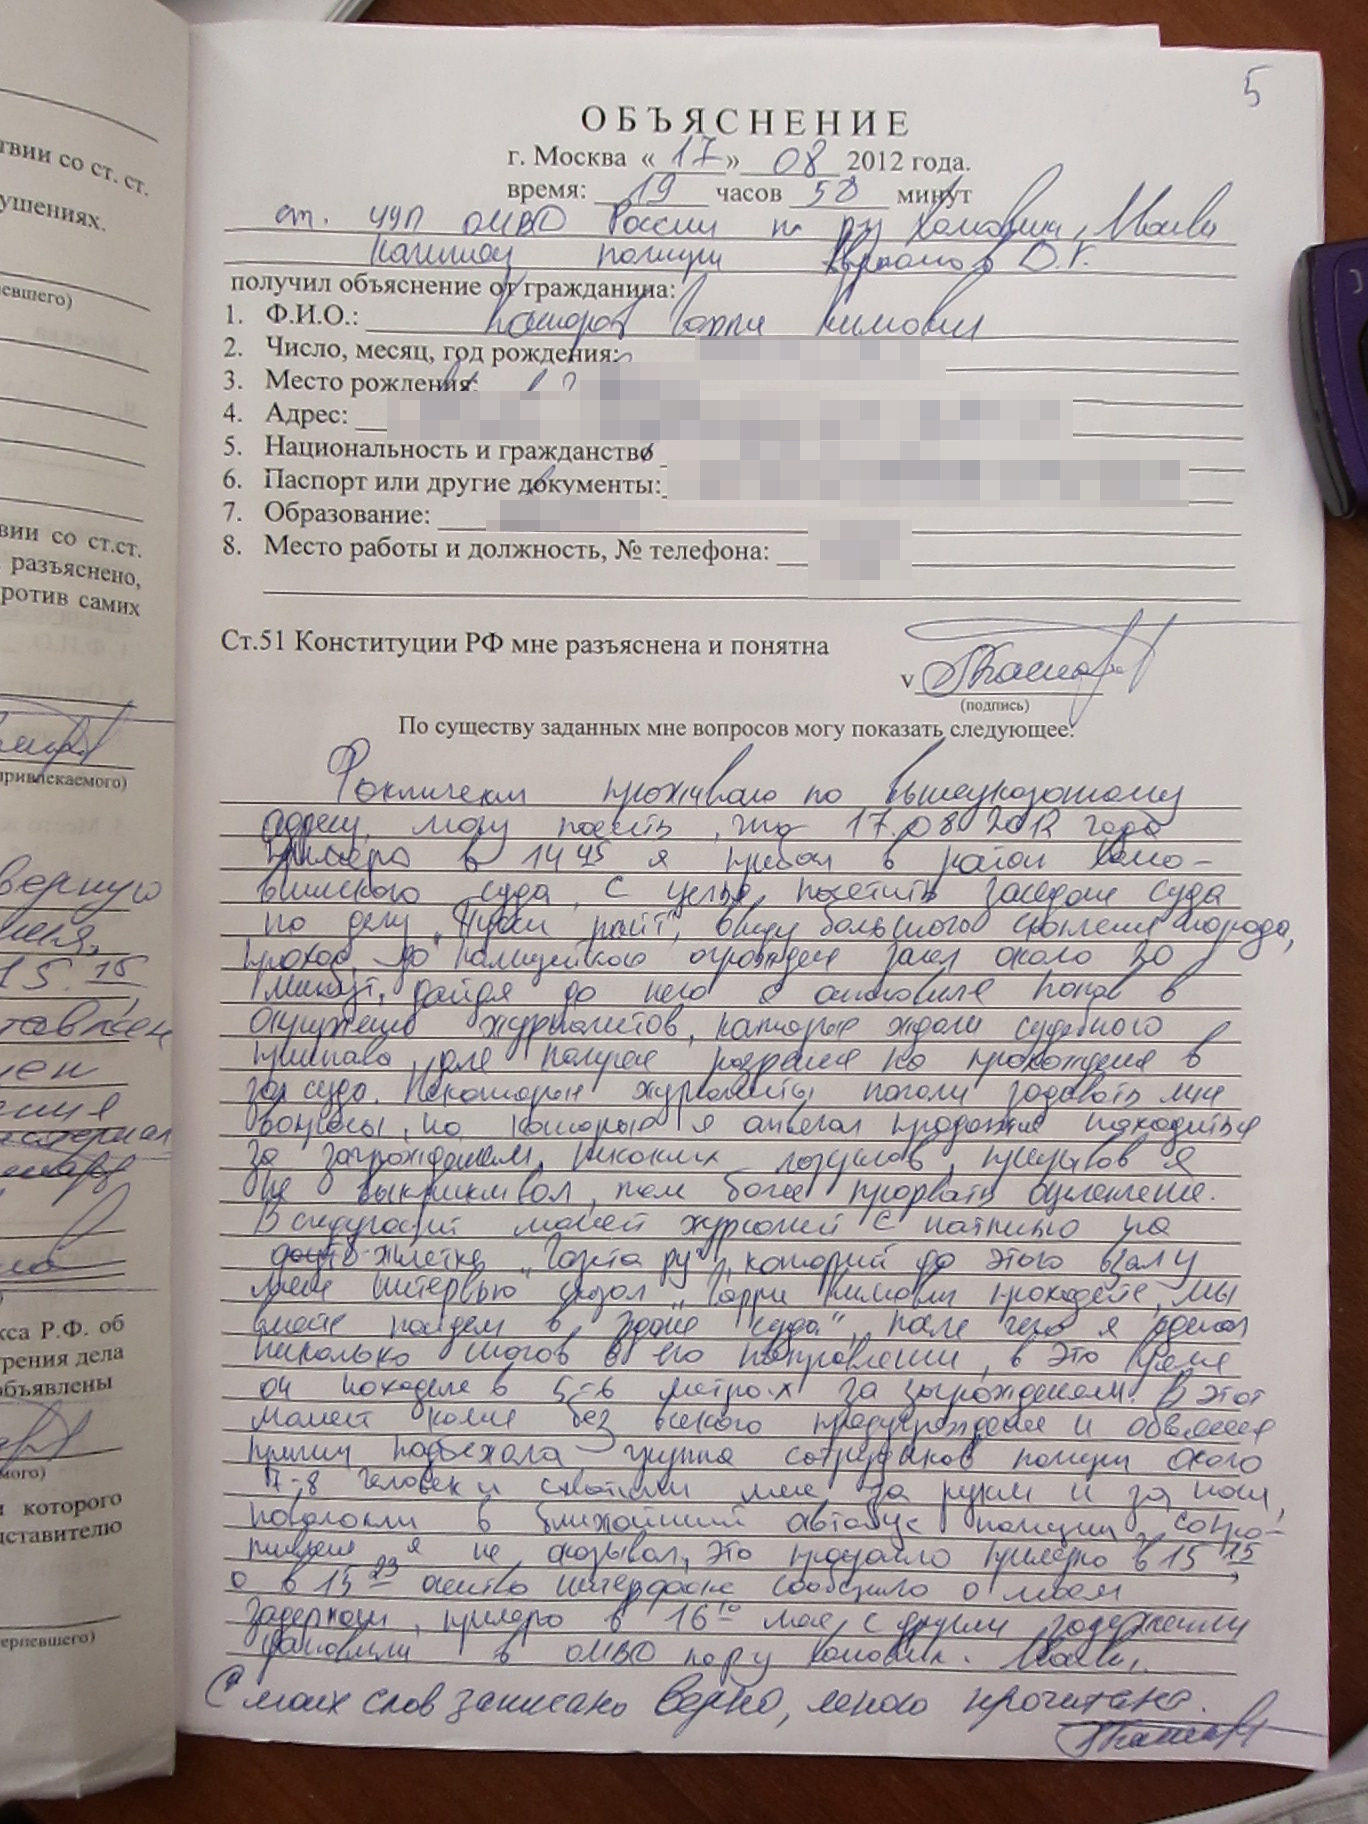 5
ОБЪЯСНЕНИЕ
г. Москва « 17 » 08 2012 года.
время: 19 часов 50 минут
ст. УУП ОМВД России по р-ну Хамовники, Москвы
капитан полиции Д.Г.
получил объяснение от гражданина:
1. Ф.И.О.: Каспаров Гарри Кимович
2. Число, месяц, год рождения:
3. Место рождения:
4. Адрес:
5. Национальность и гражданство
6. Паспорт или другие документы:
7. Образование:
8. Место работы и должность, № телефона:
Ст.51 Конституции РФ мне разъяснена и понятна
v ГКаспаров
(подпись)
По существу заданных мне вопросов могу показать следующее:
Фактически проживаю по вышеуказанному
адресу, могу пояснить, что 17.08.2012 года
примерно в 14 45 я прибыл в район Хамо-
внического суда, с целью посетить заседание суда
по делу „Пусси райт", ввиду большого скопления народа,
проход до полицейского ограждения занял около 20
минут, дойдя до него я остановился попав в
окружение журналистов, которые ждали судебного
пристава для получения разрешения на прохождение в
зал суда. Некоторые журналисты начали задавать мне
вопросы, на которые я отвечал продолжая находиться
за заграждением, никаких лозунгов, призывов я
не выкрикивал, тем более прорвать оцепление.
В следующий момент журналист с надписью на
жилетке „Газета ру", который до этого брал у
меня интервью сказал „Гарри Кимович проходите, мы
вместе пойдем в здание суда", после чего я сделал
несколько шагов в его направлении, в это время
он находился в 5-6 метрах за заграждением. В этот
момент ко мне без всякого предупреждения и объявления
причин подбежала группа сотрудников полиции около
7-8 человек и схватили меня за руки и за ноги,
поволокли в ближайший автобус полиции, сопро-
тивления я не оказывал, это произошло примерно в 15 15,
а в 15 23 агентство интерфакс сообщило о моем
задержании, примерно в 16 10 меня с другими задержанными
доставили в ОМВД по р-ну Хамовники г. Москвы.
С моих слов записано верно, мною прочитано.
ГКаспаров
твии со ст. ст.
ушениях.
евшего)
вии со ст.ст.
разъяснено,
ротив самих
привлекаемого)
верную
15. 15
кса Р.Ф. об
трения дела
объявлены
мого)
и которого
дставителю
терпевшего)